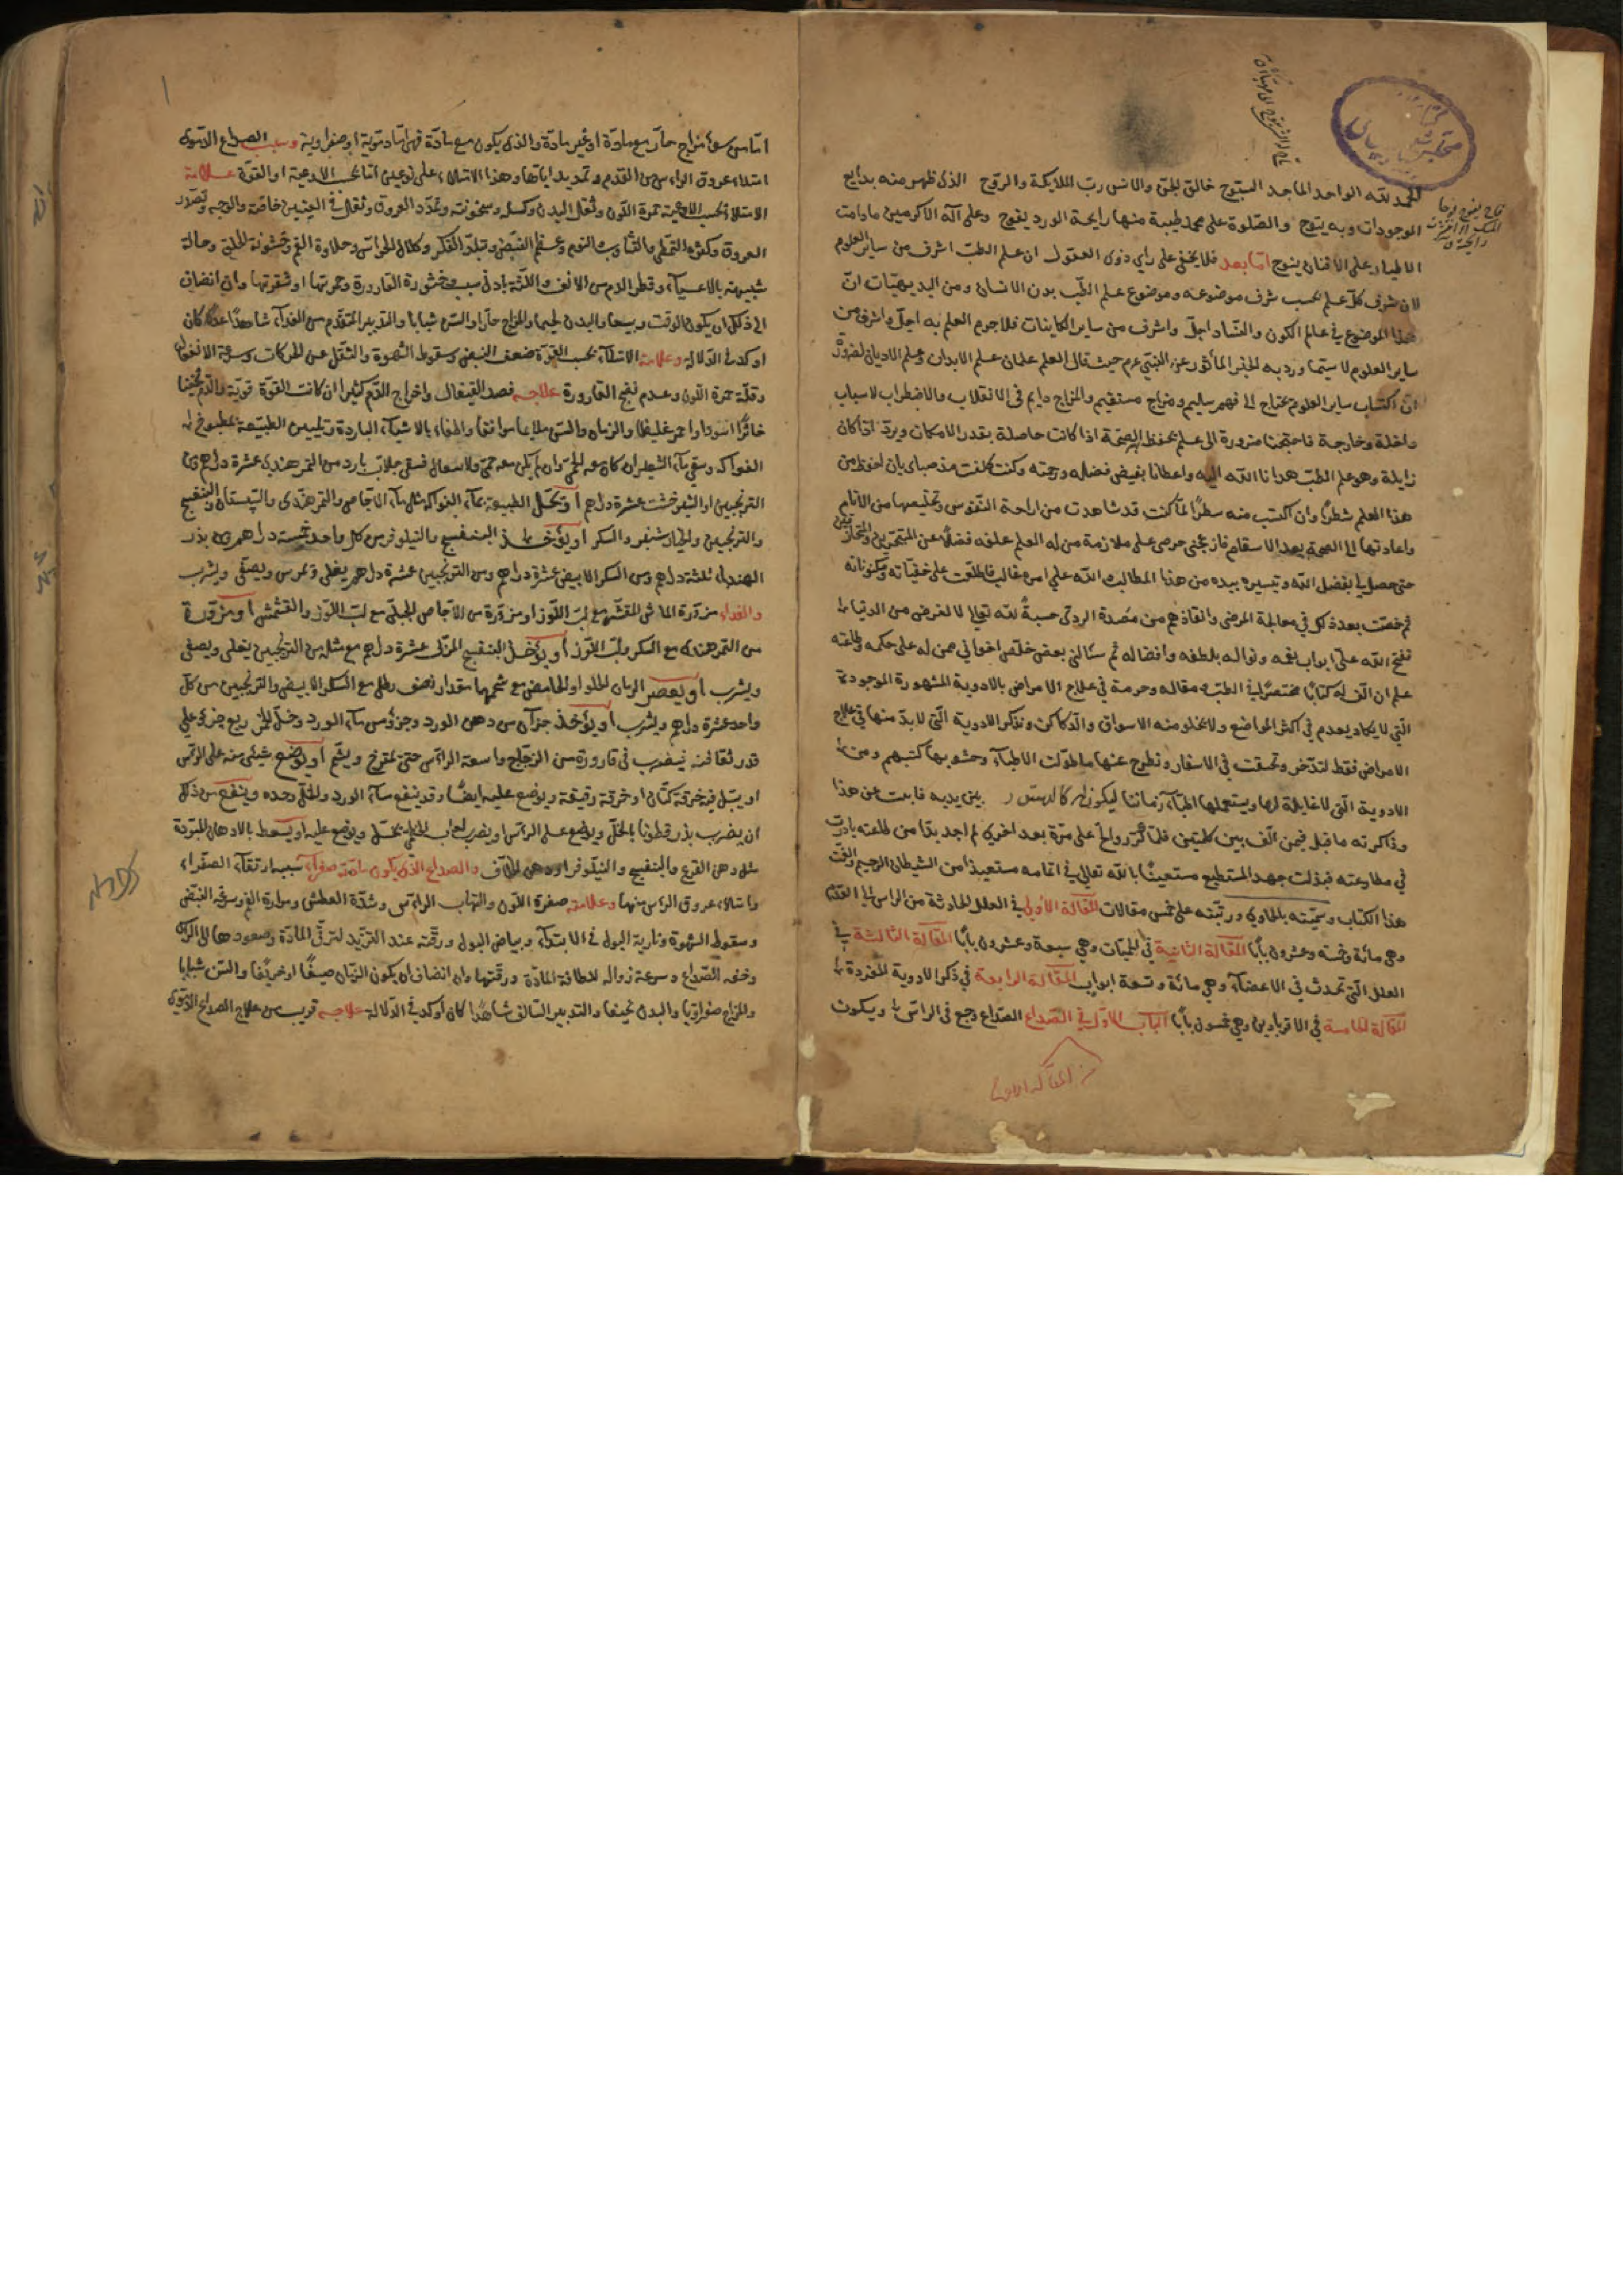 الحمد لله الواحد الماجد السبوح خالق الجن والانس رب الملايكة والروح الذى ظهر منه بدايع
الموجودات وبه يتوح والصلوة على محمد طيبة منها رايحة الورد يفوح وعلى آله الاكرمين مادامت
الاطيار على الافنان ينوح امّا بعد فلا يخفى على رأى ذوى العقول ان علم الطب اشرف من ساير العلوم
لان شرف كل علم بحسب شرف موضوعه وموضوع علم الطب بدن الانسان ومن البديهيات انّ
هذا الموضوع في عالم الكون والفساد اجلّ واشرف من ساير الكاينات فلا جرم العلم به اجلّ واشرف من
ساير العلوم لا سيما ورد به الخبر المأثور عن النبي عم حيث قال العلم علمان علم الابدان وعلم الاديان
انّ اكتساب ساير العلوم يحتاج الى فهم سليم ومزاج مستقيم والمزاج دايم فى الانقلاب والاضطراب لاسباب
داخلة وخارجة فاحتجنا ضرورة الى علم يحفظ الصحة اذا كانت حاصلة بقدر الامكان ويردّ اذا كان
زايلة وهو علم الطب هدانا الله اليه واعطانا بفيض فضله ورحمته وكنت كلفت منذ صباى بان احفظ من
هذا العلم شطرًا وان اكتب منه سطرًا لما كنت قد شاهدت من اراحة النفوس وتخليصها من الآلام
واعادتها الى الصحة بعد الاسقام فازعجنى حرصى على ملازمة من له العلم علفه فضلا عن المتبحرين
حتى حصل لى بفضل الله وتيسيره بيده من هذا المطالب والله على امره غالب فاطلعت على خفياته ومكنوناته
ثم خضت بعد ذلك في معالجة المرضى وانقاذهم من مصيدة الردى حسبة لله تعالى لا لغرض من الدنيا
ففتح الله علىّ ابواب نعمه ونواله بلطفه وافضاله ثم سئالنى بعض خلص اخوانى ممن له على حكمه وطاعته
علم ان الف له كتابًا مختصرًا فى الطب مقاله وحرمة في علاج الامراض بالادوية المشهورة الموجودة
التى لا يكاد يعدم في اكثر المواضع ولا يخلو منه الاسواق والدكاكن ونذكر الادوية التى لا بدّ منها في علاج
الامراض فقط لتدخر وتحسقت في الاسفار ونطرح عنها ما طوّلت الاطباء وحشو بها كتبهم ومن
الادوية التى لا غايلة لها ويستعملها اطباء زماننا ليكون له كالدستور بين يديه فابيت عن هذا
وذاكرته ما قيل فيمن الف بين كلمتين فلما كرّر والحّ علىّ مرة بعد اخرى لم اجد بدًّا من طاعته بادرت
في مطاوعته فبذلت جهد المستطيع مستعينًا بالله تعالى فى اتمامه مستعيذا من الشيطان الرجيم والفت
هذا الكتاب وسميته بالحاوى ورتبته على خمس مقالات المقالة الأولى في العلل الحادثة من الراس الى القدم
وهى مائة وخمسة وعشرون بابًا المقالة الثانية في الحميات وهى سبعة وعشرون بابًا المقالة الثالثة في
العلل التى تحدث فى الاعضاء وهى مائة وتسعة ابواب المقالة الرابعة في ذكر الادوية المفردة
المقالة الخامسة في الاقربادين وهى خمسون بابًا الباب الاول فى الصداع الصداع وجع فى الراس ويكون
من المقالة الاولى
امّا من سوء مزاج حارّ مع مادة او غير مادة والذى يكون مع مادة فهى امّا دموية او صفراوية وسبب الصداع الدموى
امتلاء عروق الراس من الدم وتمديد اياها وهذا الامتلاء على نوعين اما بحسب الاوعية او القوة علامة
الامتلاء بحسب الاوعية حمرة اللون وثقل البدن وكسل وسخونة وتمدد العروق وثقل فى العينين خاصة والوجه
العروق وكثرة التمطى والتثاوب والنوم وعظم النبض وتبلد الفكر وكلال الحواس وحلاوة الفم وخشونة الحلق وحالة
شبيهة بالاعياء وقطر الدم من الانف واللثة بادنى سبب وخثورة القارورة وحمرتها او شقرتها وان انضاف
الى ذلك ان يكون الوقت ربيعا والبدن لحيما والمزاج حارا والسن شبابا والتدبير المتقدم من الغداء شاهدا كان
اوكد في الدلالة وعلامة الامتلاء بحسب القوة ضعف النبض وسقوط الشهوة والثقل عن الحركات وسرعة الانفعال
وقلة حمرة اللون وعدم نضج القارورة علاجه فصد القيفال واخراج الدم كثيرا ان كانت القوة قوية والدم
خاثرًا اسود او احمر غليظا والزمان والسن ملايما موافقا واطفاء بالاشياء الباردة وتليين الطبيعة بمطبوخ
الفواكه وسقى ماء الشعير ان كان معه الحمى وان لم يكن معه حمى ولا سعال فسقى جلاب بارد من التمر هندى عشرة دراهم
الترنجبين او الشيرخشت عشرة دراهم او تحلل الطبيعة بماء الفواكه مثل ماء الاجاص والتمر هندى والسپستان والبنفسج
والترنجبين والخيارشنبر والسكر او يؤخذ البنفسج والنيلوفر من كل واحد خمسة دراهم من بذر
الهندبا ثلثة دراهم ومن السكر الابيض عشرة دراهم ومن الترنجبين عشرة دراهم يغلى ويمرس ويصفى ويشرب
والغداء مزورة الماش المقشر مع لب اللوز او مزورة من الاجاص الجبلى مع لب اللوز والقشمش او مزورة
من التمر هندى مع السكر ولب اللوز او يؤخذ البنفسج عشرة دراهم مع مثله من الترنجبين يغلى ويصفى
ويشرب او يعصر الرمان الحلو او الحامض مع شحمها مقدار نصف رطل مع السكر الابيض والترنجبين من كل
واحد عشرة دراهم ويشرب او يؤخذ جزآن من دهن الورد وجزؤ من ماء الورد وخل خمر ربع جزؤ على
قدر ثقافته فيضرب فى قارورة من الزجاج واسعة الرأس حتى يمتزج ويشم او يوضع شيئ منه على الراس
او يبل فيه خرقة كتان او خرقة رقيقة ويوضع عليه ايضا وقد ينفع ماء الورد والخل وحده وينفع من ذلك
ان يضرب بذر قطونا بالخل ويوضع على الراس او يضرب لعاب بخل ويوضع عليه او يسعط بالادهان المبردة
مثل دهن القرع والبنفسج والنيلوفر او دهن الخلاف والصداع الذى يكون مادته صفراء سببه ارتقاء الصفراء
وامتلاء عروق الراس منها وعلامته صفرة اللون والتهاب الراس وشدة العطش ومرارة الفم وسرعة النبض
وسقوط الشهوة ونارية البول فى الابتداء وبياض البول ورقته عند التزيد لترقى المادة وصعودها الى الراس
وخفة الصداع وسرعة زواله للطافة المادة ورقتها وان انضاف ان يكون الزمان صيفًا او خريفا والسن شبابا
والمزاج صفراويا والبدن نحيفا والتدبير السالف شاهدًا كان اوكد في الدلالة علاجه قريب من علاج الصداع الدموى